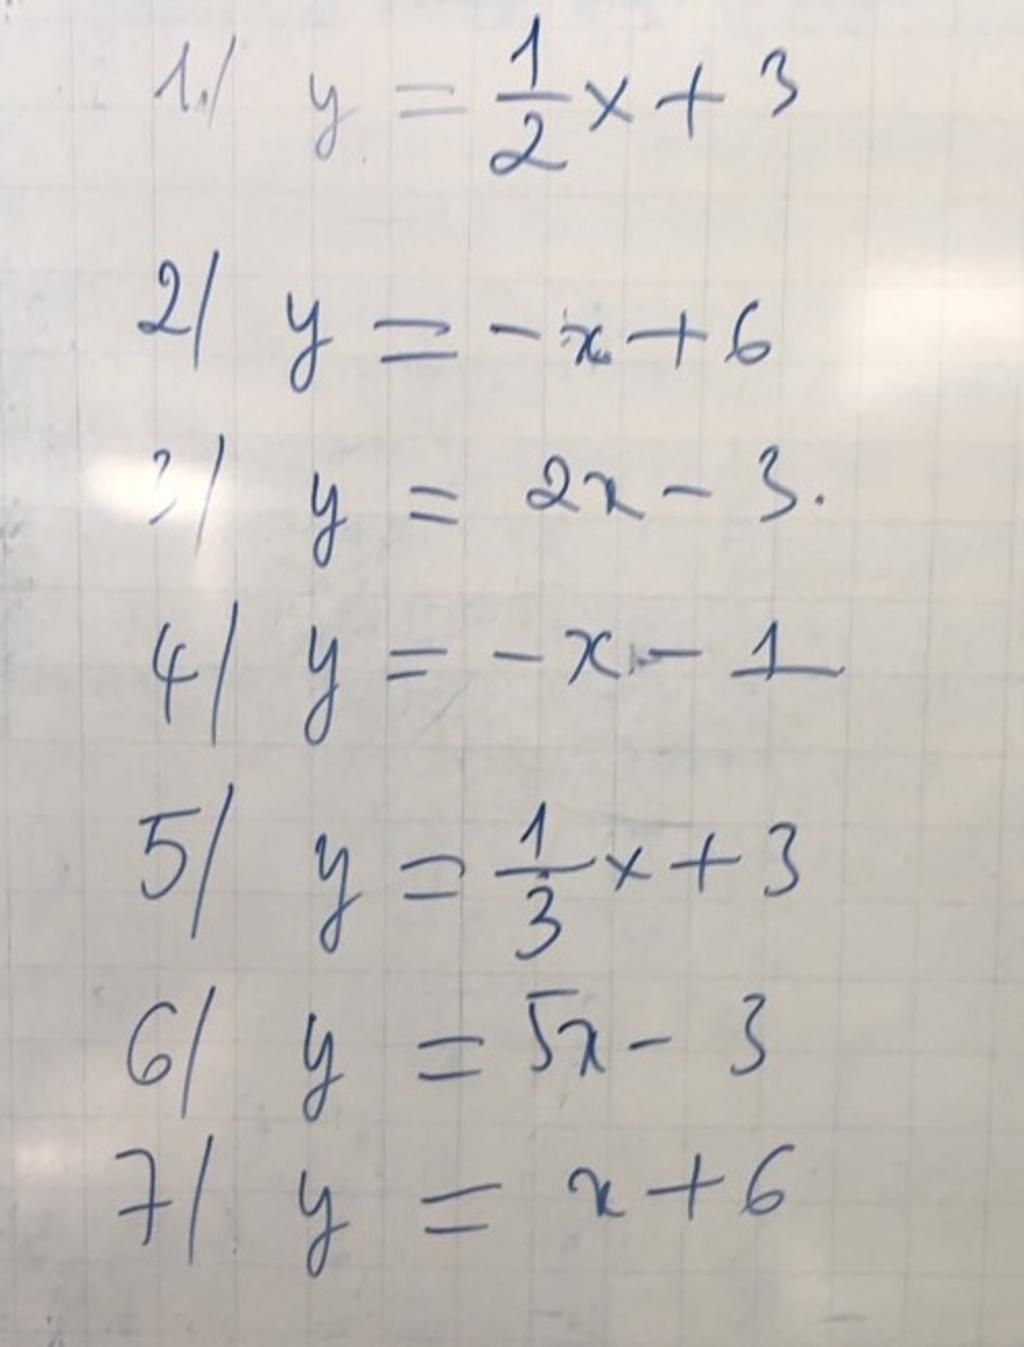 1./ y = 1/2 x + 3
2/ y = -x + 6
3/ y = 2x - 3.
4/ y = -x - 1
5/ y = 1/3 x + 3
6/ y = 5x - 3
7/ y = x + 6